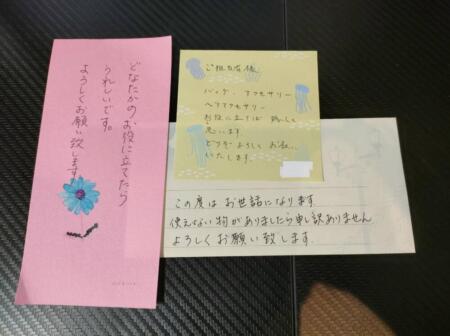 どなたかのお役に立てたら
うれしいです。
よろしくお願い致します
ご担当者様
バッグ、アクセサリー
ヘアアクセサリー
お役に立てば 嬉しいと
思います
どうぞ よろしく お願い
いたします。
この度は お世話になります
使えない物がありましたら申し訳ありません
よろしくお願い致します.